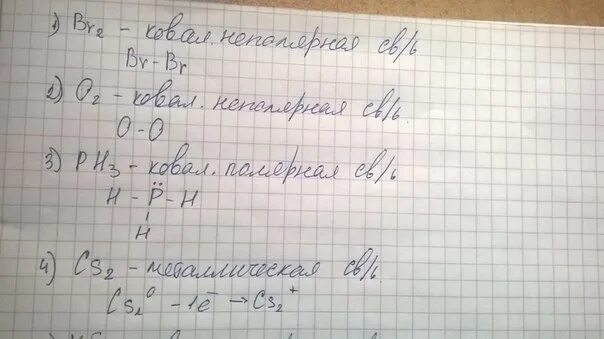 1) Br₂ – ковал. неполярная св/ь
Br – Br
2) O₂ – ковал. неполярная св/ь.
O – O
3) PH₃ – ковал. полярная св/ь
H – P̈ – H
|
H
4) Cs₂ – металлическая св/ь.
Cs₂⁰ – 1e⁻ → Cs₂⁺